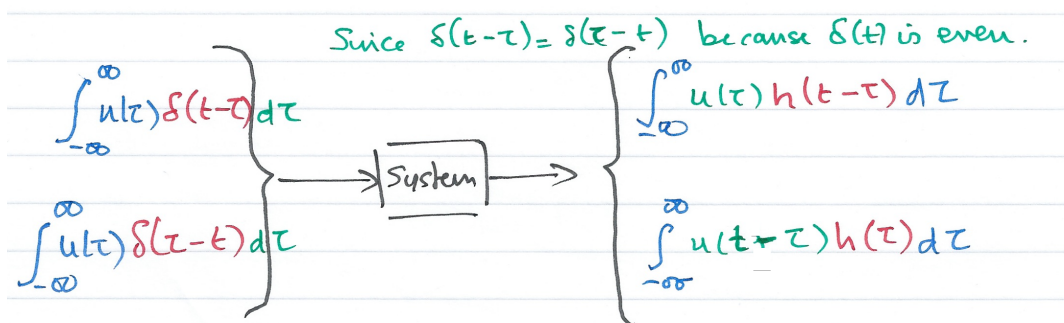 Suice δ(t-τ)= δ(τ-t) because δ(t) is even.
∫_{-∞}^{∞} u(τ) δ(t-τ) dτ
∫_{-∞}^{∞} u(τ) h(t-τ) dτ
System
∫_{-∞}^{∞} u(τ) δ(τ-t) dτ
∫_{-∞}^{∞} u(t-τ) h(τ) dτ